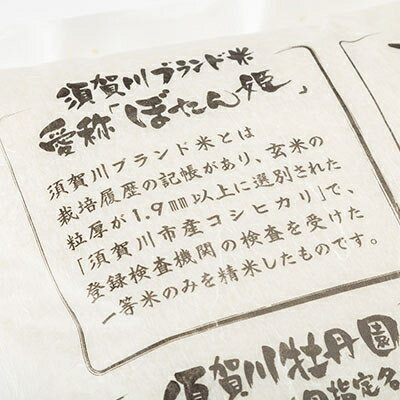 須賀川ブランド米
愛称「ぼたん姫」
須賀川ブランド米とは
栽培履歴の記帳があり、玄米の
粒厚が1.9mm以上に選別された
「須賀川市産コシヒカリ」で、
登録検査機関の検査を受けた
一等米のみを精米したものです。
須賀川牡丹園
指定名